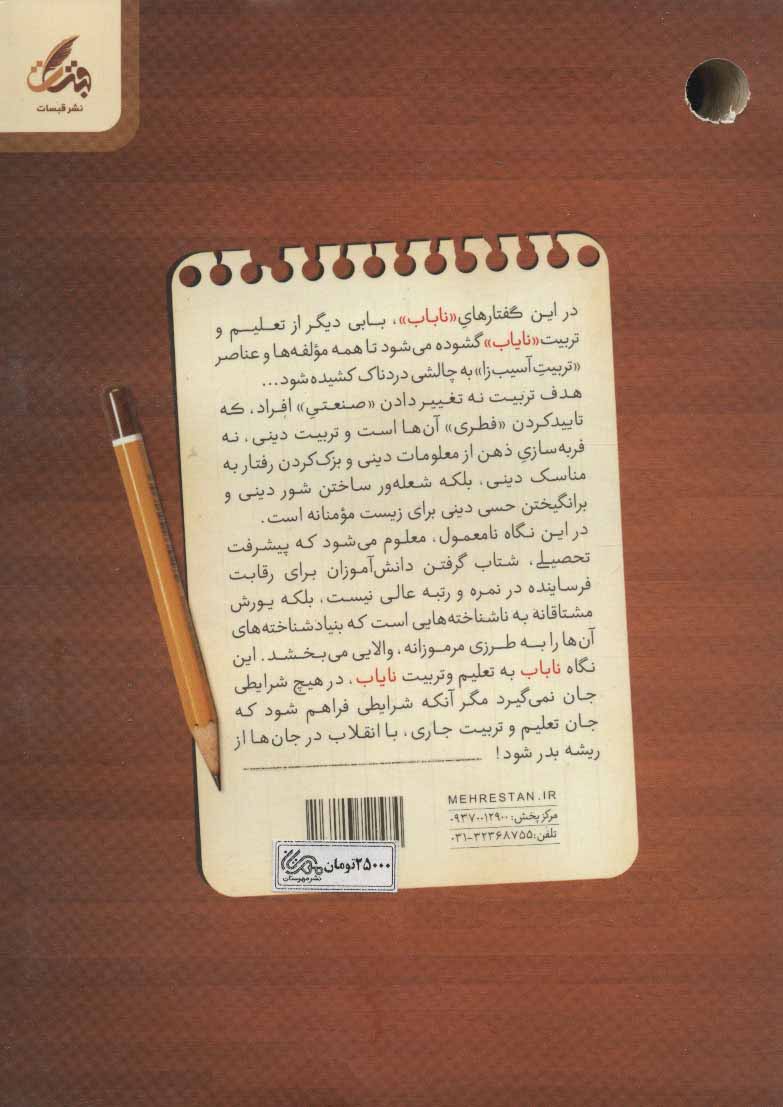 نشر قبسات
در این گفتارهایِ «ناباب»، بابی دیگر از تعلیم و
تربیت «نایاب» گشوده می‌شود تا همه مؤلفه‌ها و عناصر
«تربیتِ آسیب‌زا» به چالشی دردناک کشیده شود...
هدف تربیت نه تغییر دادن «صنعتیِ» افراد، که
تاییدکردن «فطری» آن‌ها است و تربیت دینی، نه
فربه‌سازیِ ذهن از معلومات دینی و بزک‌کردن رفتار به
مناسک دینی، بلکه شعله‌ور ساختن شور دینی و
برانگیختن حسی دینی برای زیست مؤمنانه است.
در این نگاه نامعمول، معلوم می‌شود که پیشرفت
تحصیلی، شتاب گرفتن دانش‌آموزان برای رقابت
فرساینده در نمره و رتبه عالی نیست، بلکه یورش
مشتاقانه به ناشناخته‌هایی است که بنیاد شناخته‌های
آن‌ها را به طرزی مرموزانه، والایی می‌بخشد. این
نگاه ناباب به تعلیم وتربیت نایاب، در هیچ شرایطی
جان نمی‌گیرد مگر آنکه شرایطی فراهم شود که
جان تعلیم و تربیت جاری، با انقلاب در جان‌ها از
ریشه بدر شود!
MEHRESTAN.IR
مرکز پخش: ۰۹۳۷۰۰۱۲۹۰۰
تلفن: ۰۳۱-۳۲۳۶۸۷۵۵
۲۵۰۰۰تومان
نشر مهرستان